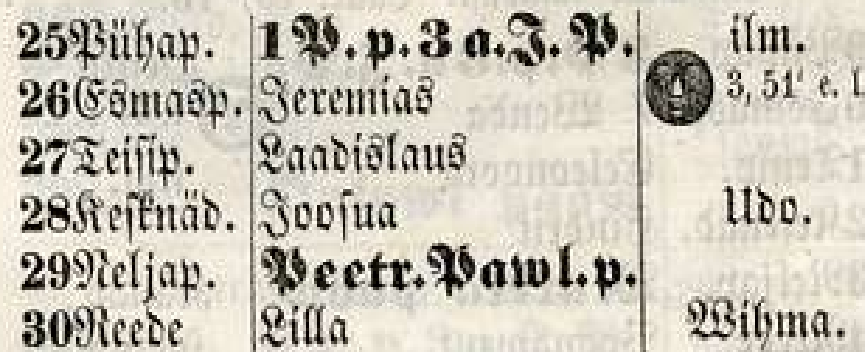 25 Pühap. 1 P. p. 3 a. J. P. ilm.
26 Esmasp. Jeremias 3, 51' e. l
27 Teisip. Laadislaus
28 Kesknäd. Joosua Udo.
29 Neljap. Peetr. Pawl. p.
30 Reede Lilla Wihma.